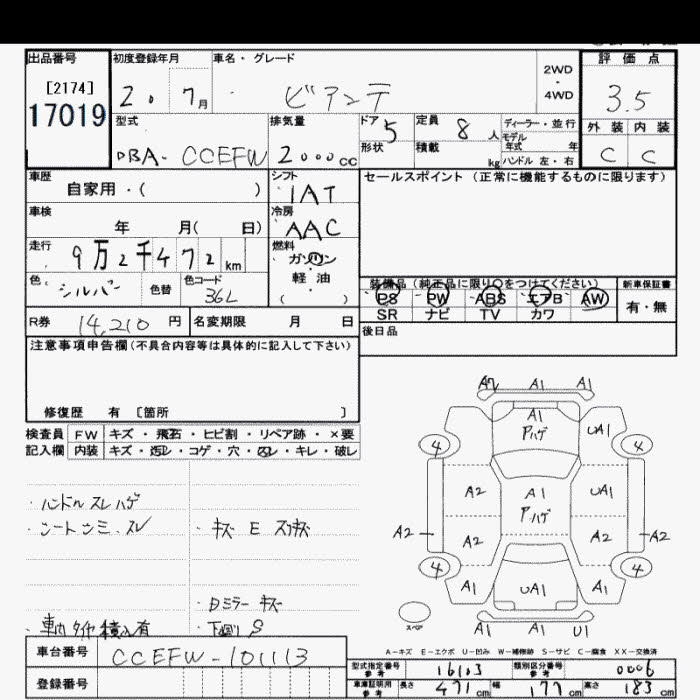 出品番号
[2174]
17019
初度登録年月
2. 7月
車名・グレード
ビアンテ
2WD
・
4WD
評価点
3.5
外装 内装
C C
型式
DBA- CCEFW
排気量
2000cc
ドア 5
形状
定員 8人
積載 kg
ディーラー・並行
モデル
年式 年
ハンドル 左・右
車歴
自家用・( )
シフト
IAT
セールスポイント (正常に機能するものに限ります)
車検
年 月( 日)
冷房
AAC
走行
9万2千472km
燃料
ガソリン
・
軽油
( )
色
シルバー
色替
色コード
36L
装備品 (純正品に限り〇をつけてください)
PS PW ABS エアB AW
SR ナビ TV カワ
新車保証書
有・無
R券 14,210円
名変期限 月 日
後日品
注意事項申告欄(不具合内容等は具体的に記入して下さい)
修復歴 有 [箇所 ]
検査員 FW キズ・飛石・ヒビ割・リペア跡・×要
記入欄 内装 キズ・汚レ・コゲ・穴・凹レ・キレ・破レ
・ハンドル スレ ハゲ
・シートシミ、スレ
・キズ E スリキズ
・Dミラー キズ
・車内タイヤ積込有
・下廻り S
車台番号
CCEFW-101113
登録番号
A1 A1
A1
Pハゲ
UA1
4 4
A2 A1 UA1
Pハゲ
A2 A2 A2 A2
4 4
A1 UA1 A1
スペア
A1 A1 U1
A-キズ E-エクボ U-凹み W-補修跡 S-サビ C-腐食 XX-交換済
型式指定番号
参考
16103
類別区分番号
参考
0006
車庫証明用
参考
長さ 471cm 幅 177cm 高さ 183cm